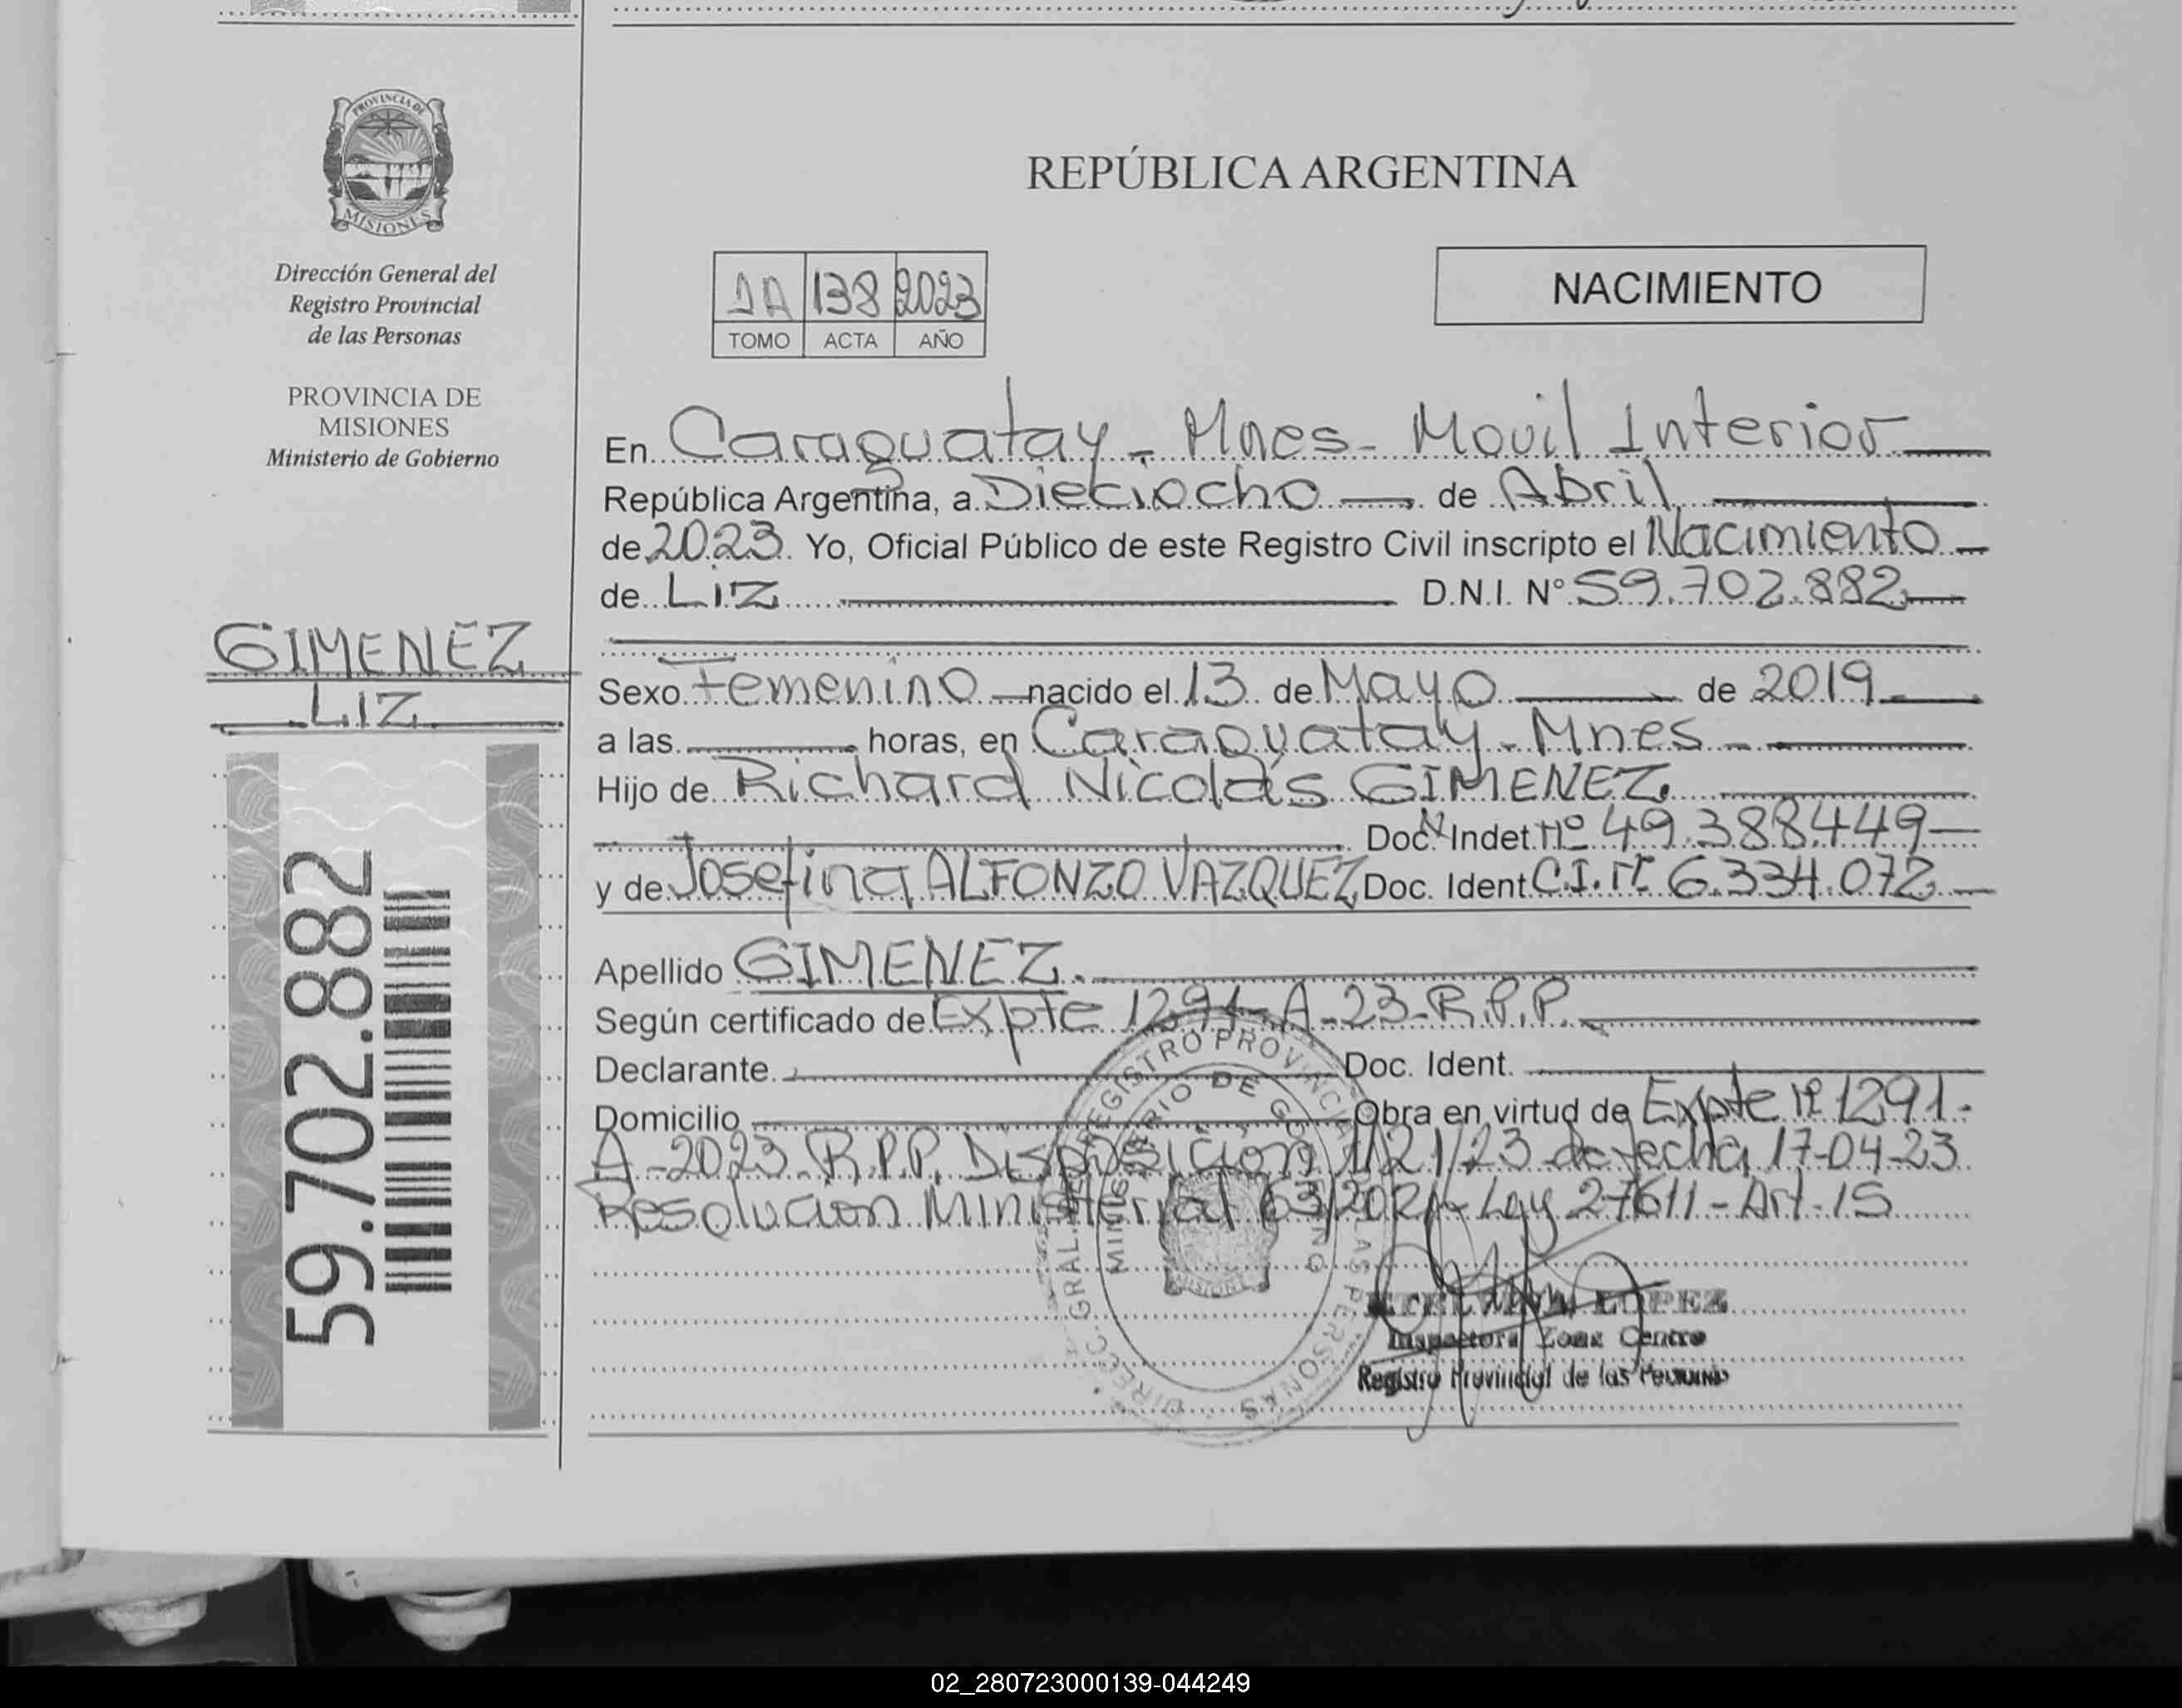 PROVINCIA DE
MISIONES
Dirección General del
Registro Provincial
de las Personas
PROVINCIA DE
MISIONES
Ministerio de Gobierno
GIMENEZ
LIZ
59.702.882
REPÚBLICA ARGENTINA
NACIMIENTO
1A 138 2023
TOMO ACTA AÑO
En Caraguatay - Mnes - Movil Interior
República Argentina, a Dieciocho de Abril
de 2023. Yo, Oficial Público de este Registro Civil inscripto el Nacimiento
de Liz D.N.I. Nº 59.702.882
Sexo Femenino nacido el 13 de Mayo de 2019
a las horas, en Caraguatay - Mnes
Hijo de Richard Nicolás GIMENEZ
Doc. Indet. Nº 49.388.449
y de Josefina ALFONZO VAZQUEZ Doc. Ident. C.I. Nº 6.334.072
Apellido GIMENEZ.
Según certificado de Expte 1291-A-23-R.P.P.
Declarante Doc. Ident.
Domicilio Obra en virtud de Expte Nº 1291-
A-2023-R.P.P. Disposición 1121/23 de fecha 17-04-23
Resolucion Ministerial 63/2021-Ley 27611-Art-15
DIRECC. GRAL. REGISTRO PROVINCIAL PERSONAS
MINISTERIO DE GOBIERNO
LOPEZ
Inspectora Zona Centro
Registro Provincial de las Personas
02_280723000139-044249